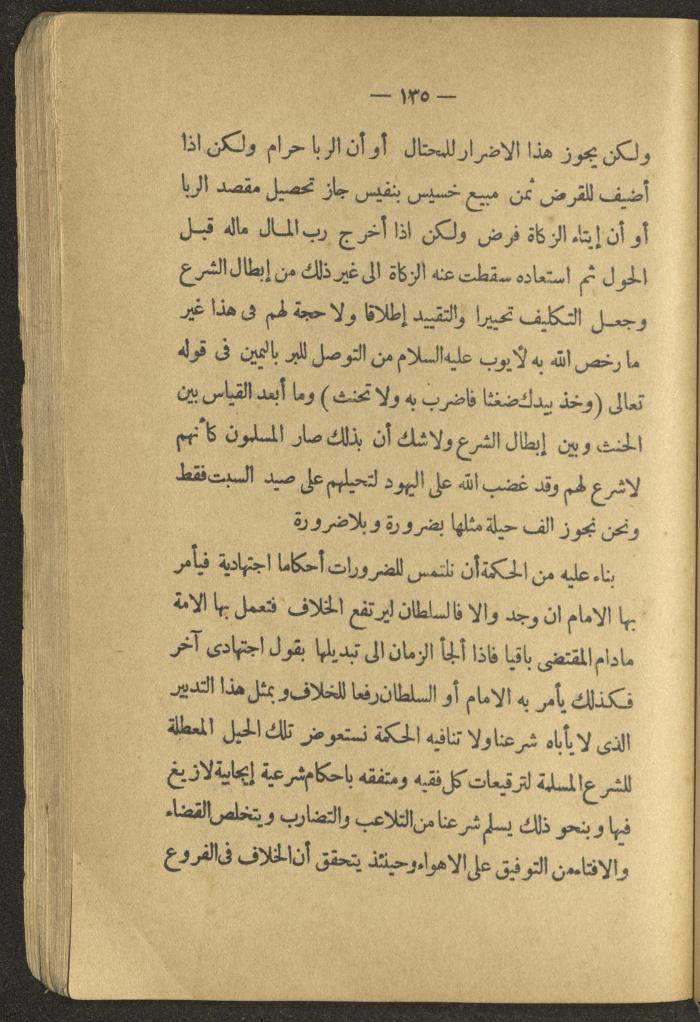 — ١٣٥ —
ولكن يجوز هذا الاضرار للمحتال أو أن الربا حرام ولكن اذا
أضيف للقرض ثمن مبيع خسيس بنفيس جاز تحصيل مقصد الربا
أو أن إيتاء الزكاة فرض ولكن اذا أخرج رب المال ماله قبل
الحول ثم استعاده سقطت عنه الزكاة الى غير ذلك من إبطال الشرع
وجعل التكليف تحييرا والتقييد إطلاقا ولا حجة لهم فى هذا غير
ما رخص الله به لأيوب عليه السلام من التوصل للبر باليمين فى قوله
تعالى (وخذ بيدك ضغثا فاضرب به ولا تحنث) وما أبعد القياس بين
الحنث وبين إبطال الشرع ولا شك أن بذلك صار المسلمون كأنهم
لا شرع لهم وقد غضب الله على اليهود لتحيلهم على صيد السبت فقط
ونحن نجوز الف حيلة مثلها بضرورة وبلا ضرورة
بناء عليه من الحكمة أن نلتمس للضرورات أحكاما اجتهادية فيأمر
بها الامام ان وجد والا فالسلطان ليرتفع الخلاف فتعمل بها الامة
مادام المقتضى باقيا فاذا ألجأ الزمان الى تبديلها بقول اجتهادى آخر
فكذلك يأمر به الامام أو السلطان رفعا للخلاف وبمثل هذا التدبير
الذى لا يأباه شرعنا ولا تنافيه الحكمة نستعوض تلك الحيل المعطلة
للشرع المسلمة لترقيعات كل فقيه ومتفقه باحكام شرعية إيجابية لا زيغ
فيها وبنحو ذلك يسلم شرعنا من التلاعب والتضارب ويتخلص القضاء
والافتاء من التوفيق على الاهواء وحينئذ يتحقق أن الخلاف فى الفروع